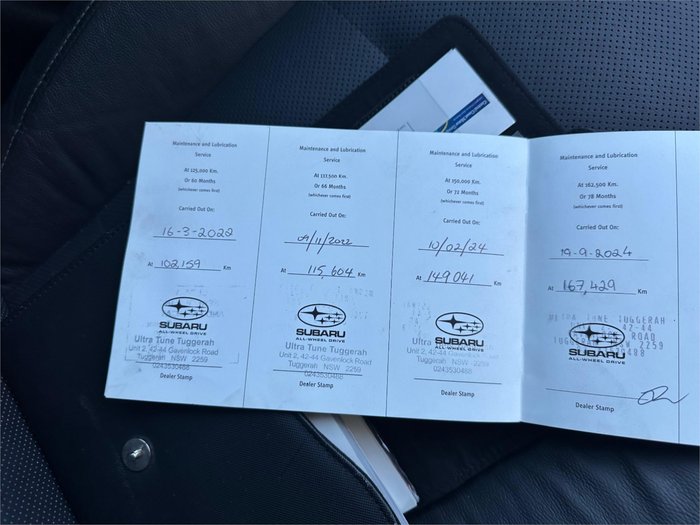 Maintenance and Lubrication
Service
At 125,000 Km.
Or 60 Months
(whichever comes first)
Carried Out On:
16-3-2022
At 102,159 Km
SUBARU
ALL-WHEEL DRIVE
Ultra Tune Tuggerah
Unit 2, 42-44 Gavenlock Road
Tuggerah NSW 2259
0243530488
Dealer Stamp
Maintenance and Lubrication
Service
At 137,500 Km.
Or 66 Months
(whichever comes first)
Carried Out On:
09/11/2022
At 115,604 Km
SUBARU
ALL-WHEEL DRIVE
Ultra Tune Tuggerah
Unit 2, 42-44 Gavenlock Road
Tuggerah NSW 2259
0243530488
Dealer Stamp
Maintenance and Lubrication
Service
At 150,000 Km.
Or 72 Months
(whichever comes first)
Carried Out On:
10/02/24
At 149041 Km
SUBARU
ALL-WHEEL DRIVE
Ultra Tune Tuggerah
Unit 2, 42-44 Gavenlock Road
Tuggerah NSW 2259
0243530488
Dealer Stamp
Maintenance and Lubrication
Service
At 162,500 Km.
Or 78 Months
(whichever comes first)
Carried Out On:
19-9-2024
At 167,429 Km
ULTRA TUNE TUGGERAH
42-44
ROAD
SUBARU
ALL-WHEEL DRIVE
NSW 2259
Dealer Stamp